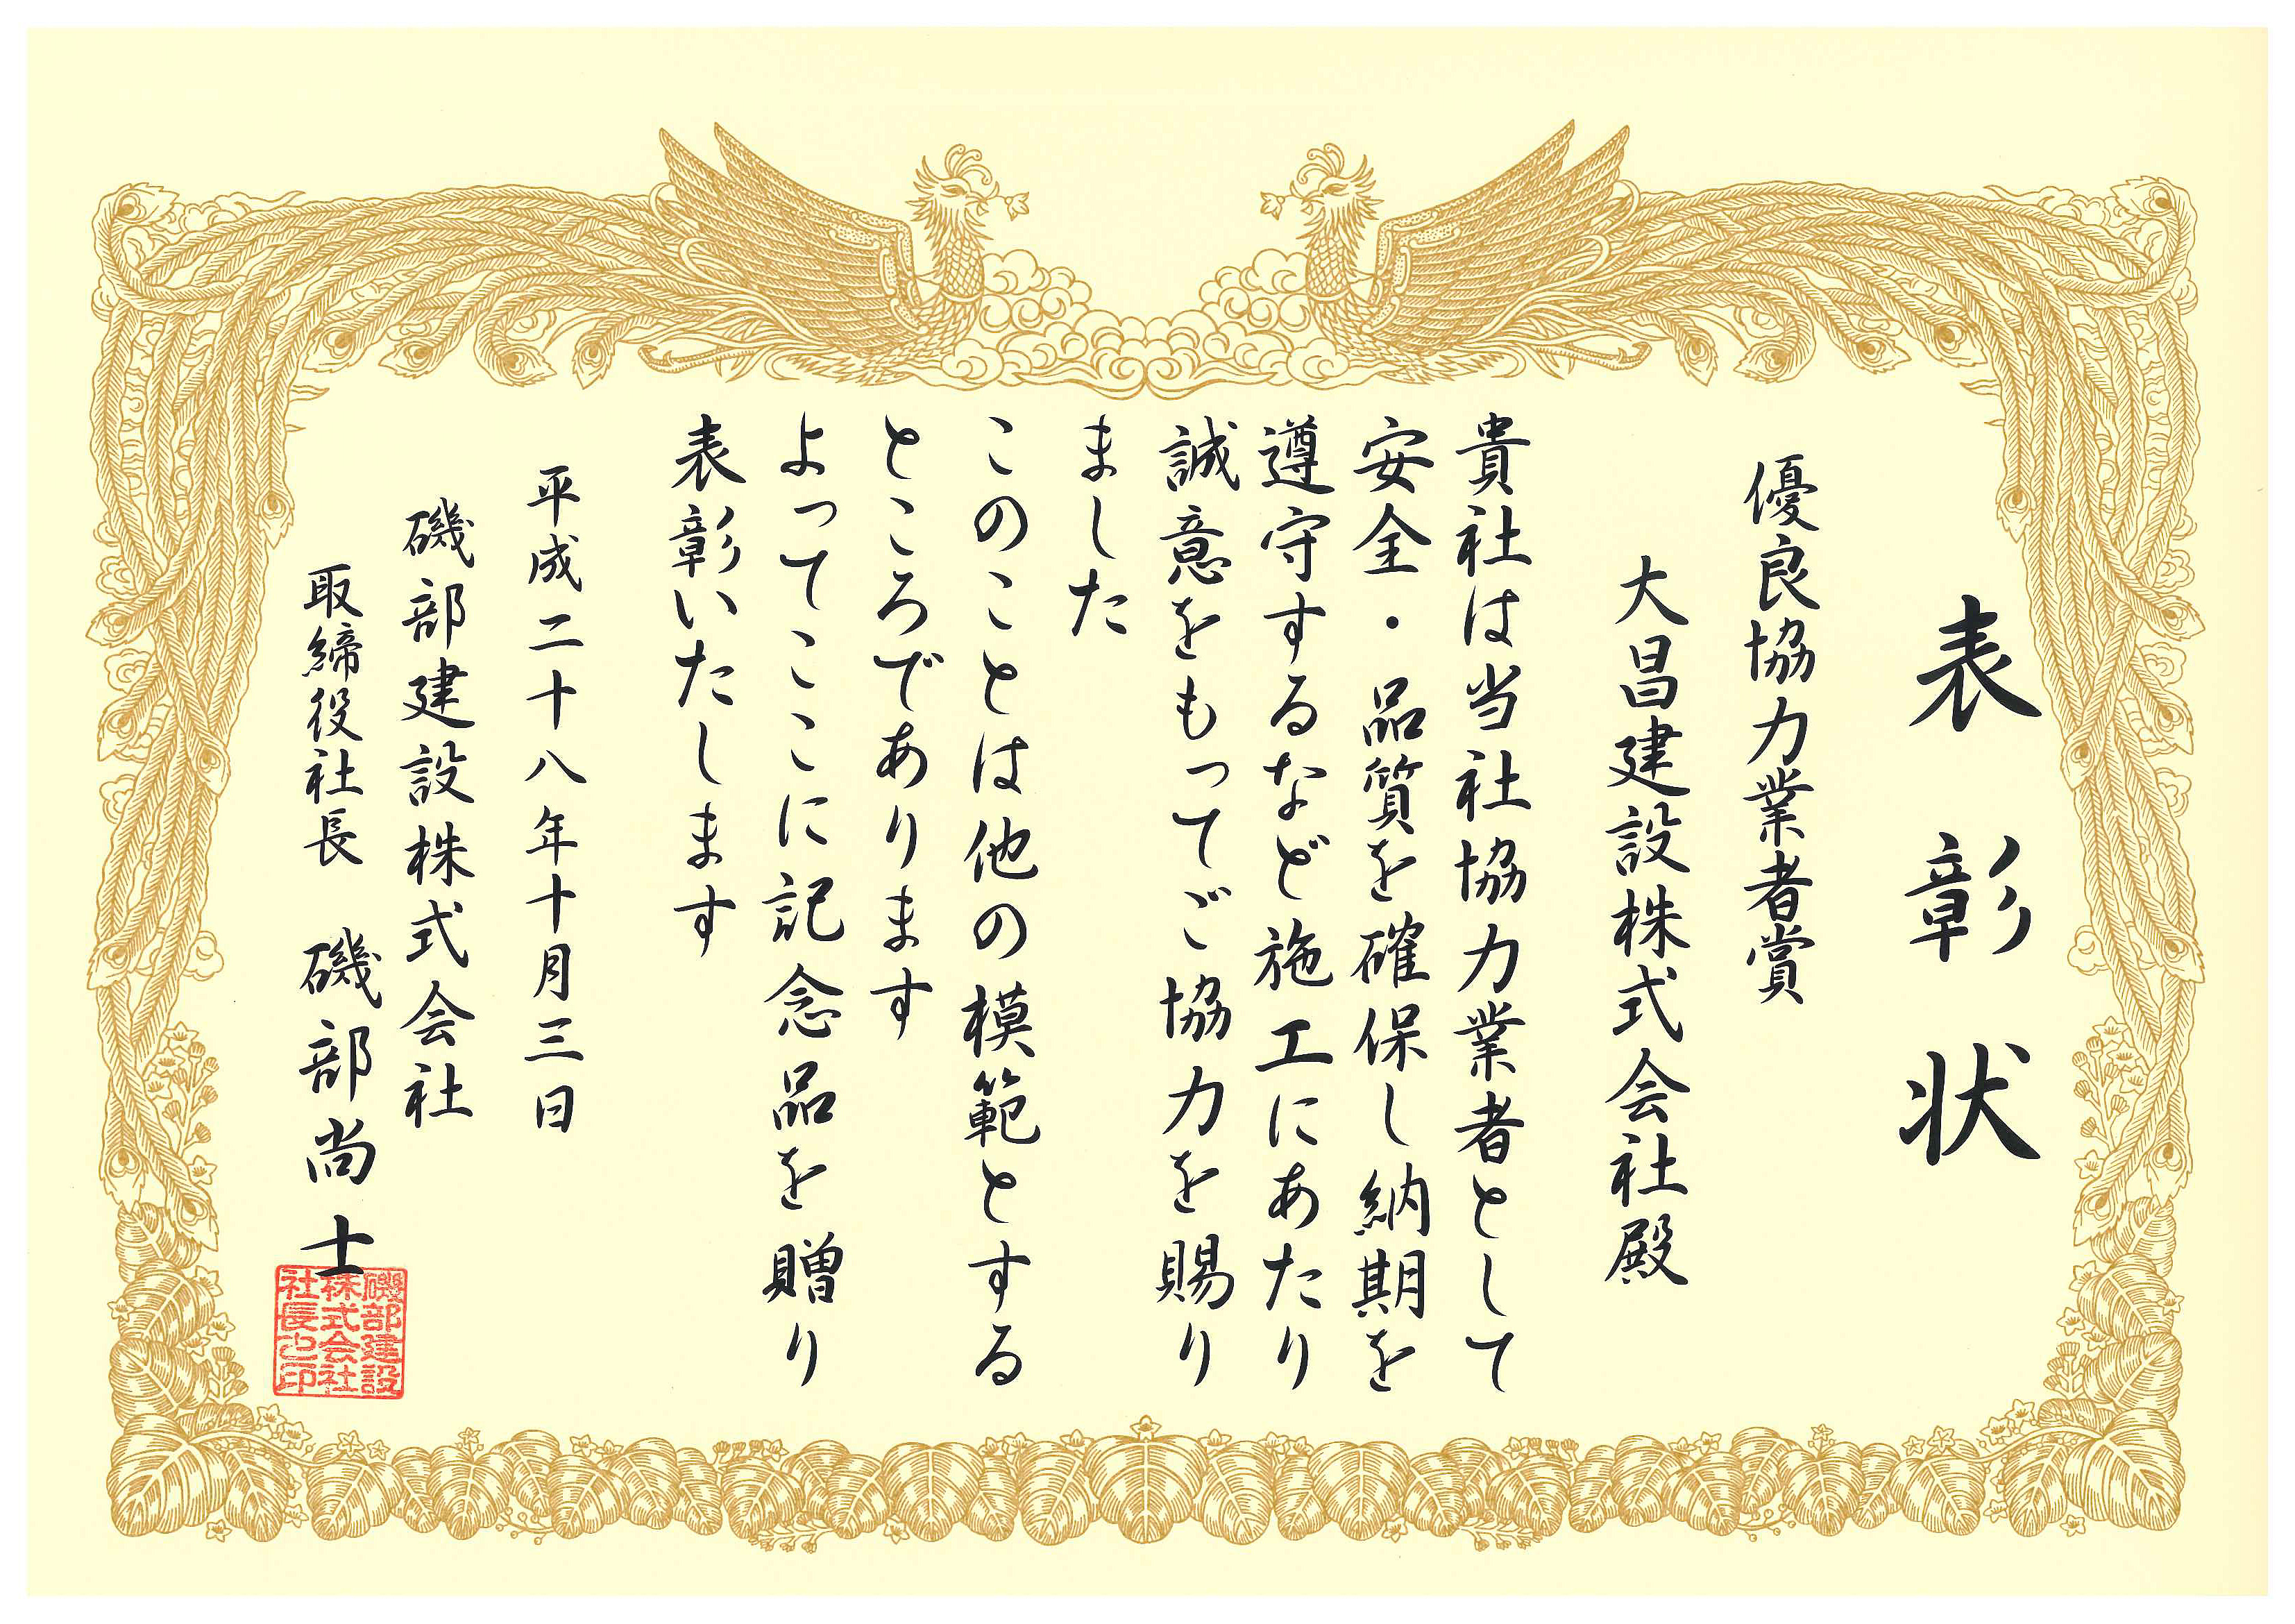 表彰状
優良協力業者賞
大昌建設株式会社殿
貴社は当社協力業者として
安全・品質を確保し納期を
遵守するなど施工にあたり
誠意をもってご協力を賜り
ました
このことは他の模範とする
ところであります
よってここに記念品を贈り
表彰いたします
平成二十八年十月三日
磯部建設株式会社
取締役社長 磯部尚士
磯部建設
株式会社
社長之印